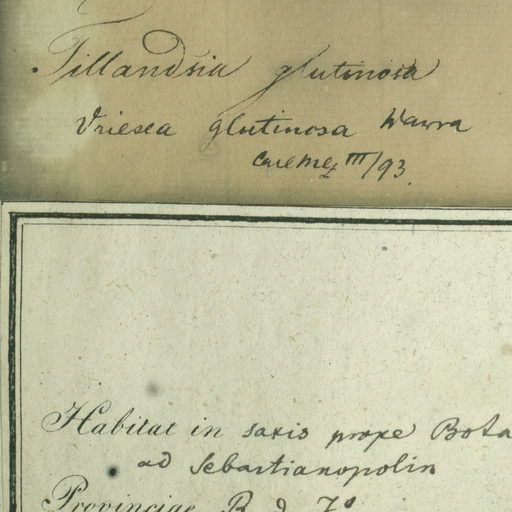 Tillandsia glutinosa
Vriesea glutinosa Wawra
III/93.
Habitat in saxis prope Bota
ad Sebastianopolin
Provinciae R. d. J.º